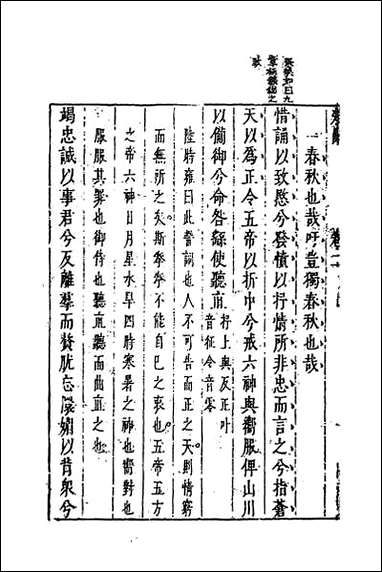 張煥如曰九
一春秋也哉吁豈獨春秋也哉
惜誦以致愍兮發憤以抒情所非忠而言之兮指蒼
天以為正令五帝以折中兮戒六神與嚮服俾山川
以備御兮命咎繇使聽直
抒上與反正叶
音征令音零
陸時雍曰此誓詞也人不可告而正之天則情窮
而無所之矣斯拳拳不能自已之衷也五帝五方
之帝六神日月星水旱四時寒暑之神也嚮對也
服服其罪也御侍也聽直聽而曲直之也
竭忠誠以事君兮反離羣而贅肬忘儇媚以背衆兮